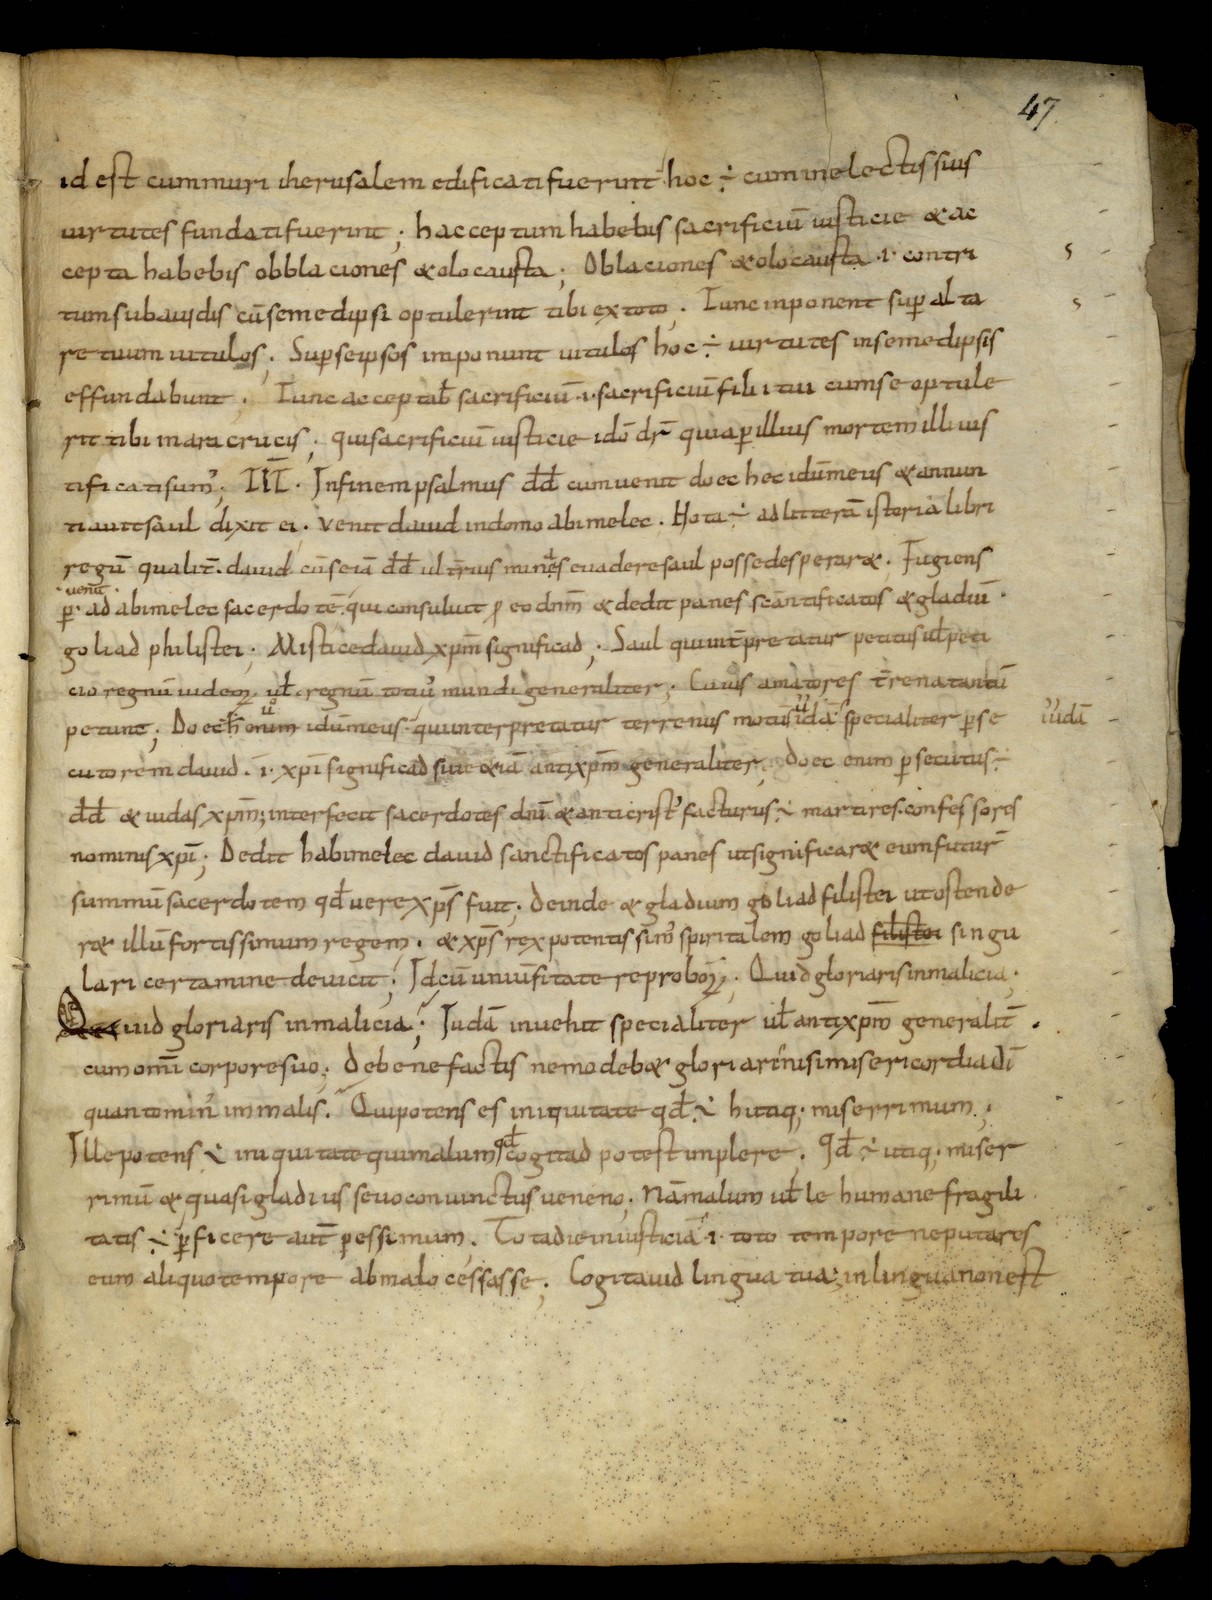 47
id est cum muri iherusalem edificati fuerint hoc ÷ cum in electis suis
uirtutes fundati fuerint; hacceptum habebis sacrificiū iusticie & ac
cepta habebis obblaciones & olocausta; Oblaciones & olocausta ·i· contri
tum subauidis cū semedipsi optulerint tibi ex toto. Tunc inponent sup altа
re tuum uitulos; Sup seipsos imponunt uitulos hoc ÷ uirtutes in semedipsis
effundabunt. Tunc acceptab sacrificiū ·i· sacrificiū filii tui cum se optule
rit tibi in ara crucis; qui sacrificiū iusticie idō dr̄ quia p illius mortem illi ius
tificati sum᾽; III. In finem psalmus dd̄ cum uenit doec hec idūmeus & annun
tiauit saul dixit ei. Venit dauid in domo abimelec. Nota ÷ ad litterā istoria libri
regū qualit̄. dauid cū seiā dd̄ ulterius min es euadere saul posse desperar&. Fugiens
uenit
p. ad abimelec sacerdotē qui consuluit p eo dnm̄ & dedit panes scāntificatos & gladiū.
goliad philistei; Misticedauid xpm̄ significad; Saul qui int̄pretatur petitus ul peti
cio regnū iudeoꝝ ul regnū totiu᾽ mundi generaliter; Cuius amatores t̄rena tantū
petunt; Doech idūmeus qui interpretatur terrenus motus iudā specialiter pse iudā
cutorem dauid. ·i· xpi significad siue &iā antixpm̄ generaliter. doec enim psecutus ÷
dd̄ & iudas xpm̄; interfecit sacerdotes dnī & anticrist᾽ facturus ÷ martires. confessores
nominis xpi; Dedit habimelec dauid sanctificatos panes ut significar& eum futur̄
summū sacerdotem qd̄ uere xps̄ fuit; deinde & gladium goliad filistei ut ostende
r& illū fortissimum regem. & xps̄ rex potentissim᾽ spiritalem goliad filistei singu
lari certamine deuicit; Id cū uniūsitate reproboꝝ. Quid gloriaris in malicia.
Quid gloriaris in malicia; Iudā inuehit specialiter ul antixpm̄ generalit̄.
cum omī corpore suo; De benefactis nemo deb& gloriari nisi misericordia dī
quanto min᾽ in malis. Qui potens es iniquitate qd̄ ÷ hutiq; miserrimum;
Ille potens ÷ iniquitate qui malum qd̄ cogitad potest implere. Qd̄ ÷ utiq; miser
rimū & quasi gladius seuo coniunctus ueneno; Nā malum uelle humane fragili
tatis ÷ pficere aut̄ pessimum. Tota die iniusticiā ·i· toto tempore ne putares
eum aliquo tempore ab malo cessasse; Cogitauid lingua tua; in lingua non est